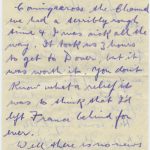 Coming across the Channel
we had a terribly rough
time & I was sick all the
way. It took us 3 hours
to get to Dover but it
was worth it. You dont
know what a relief it
was to think that I'd
left France behind for
ever.
Well there is no news